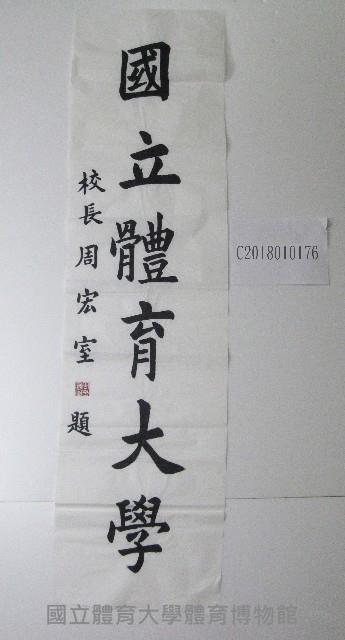 國立體育大學
校長周宏室題
C2018010176
國立體育大學體育博物館